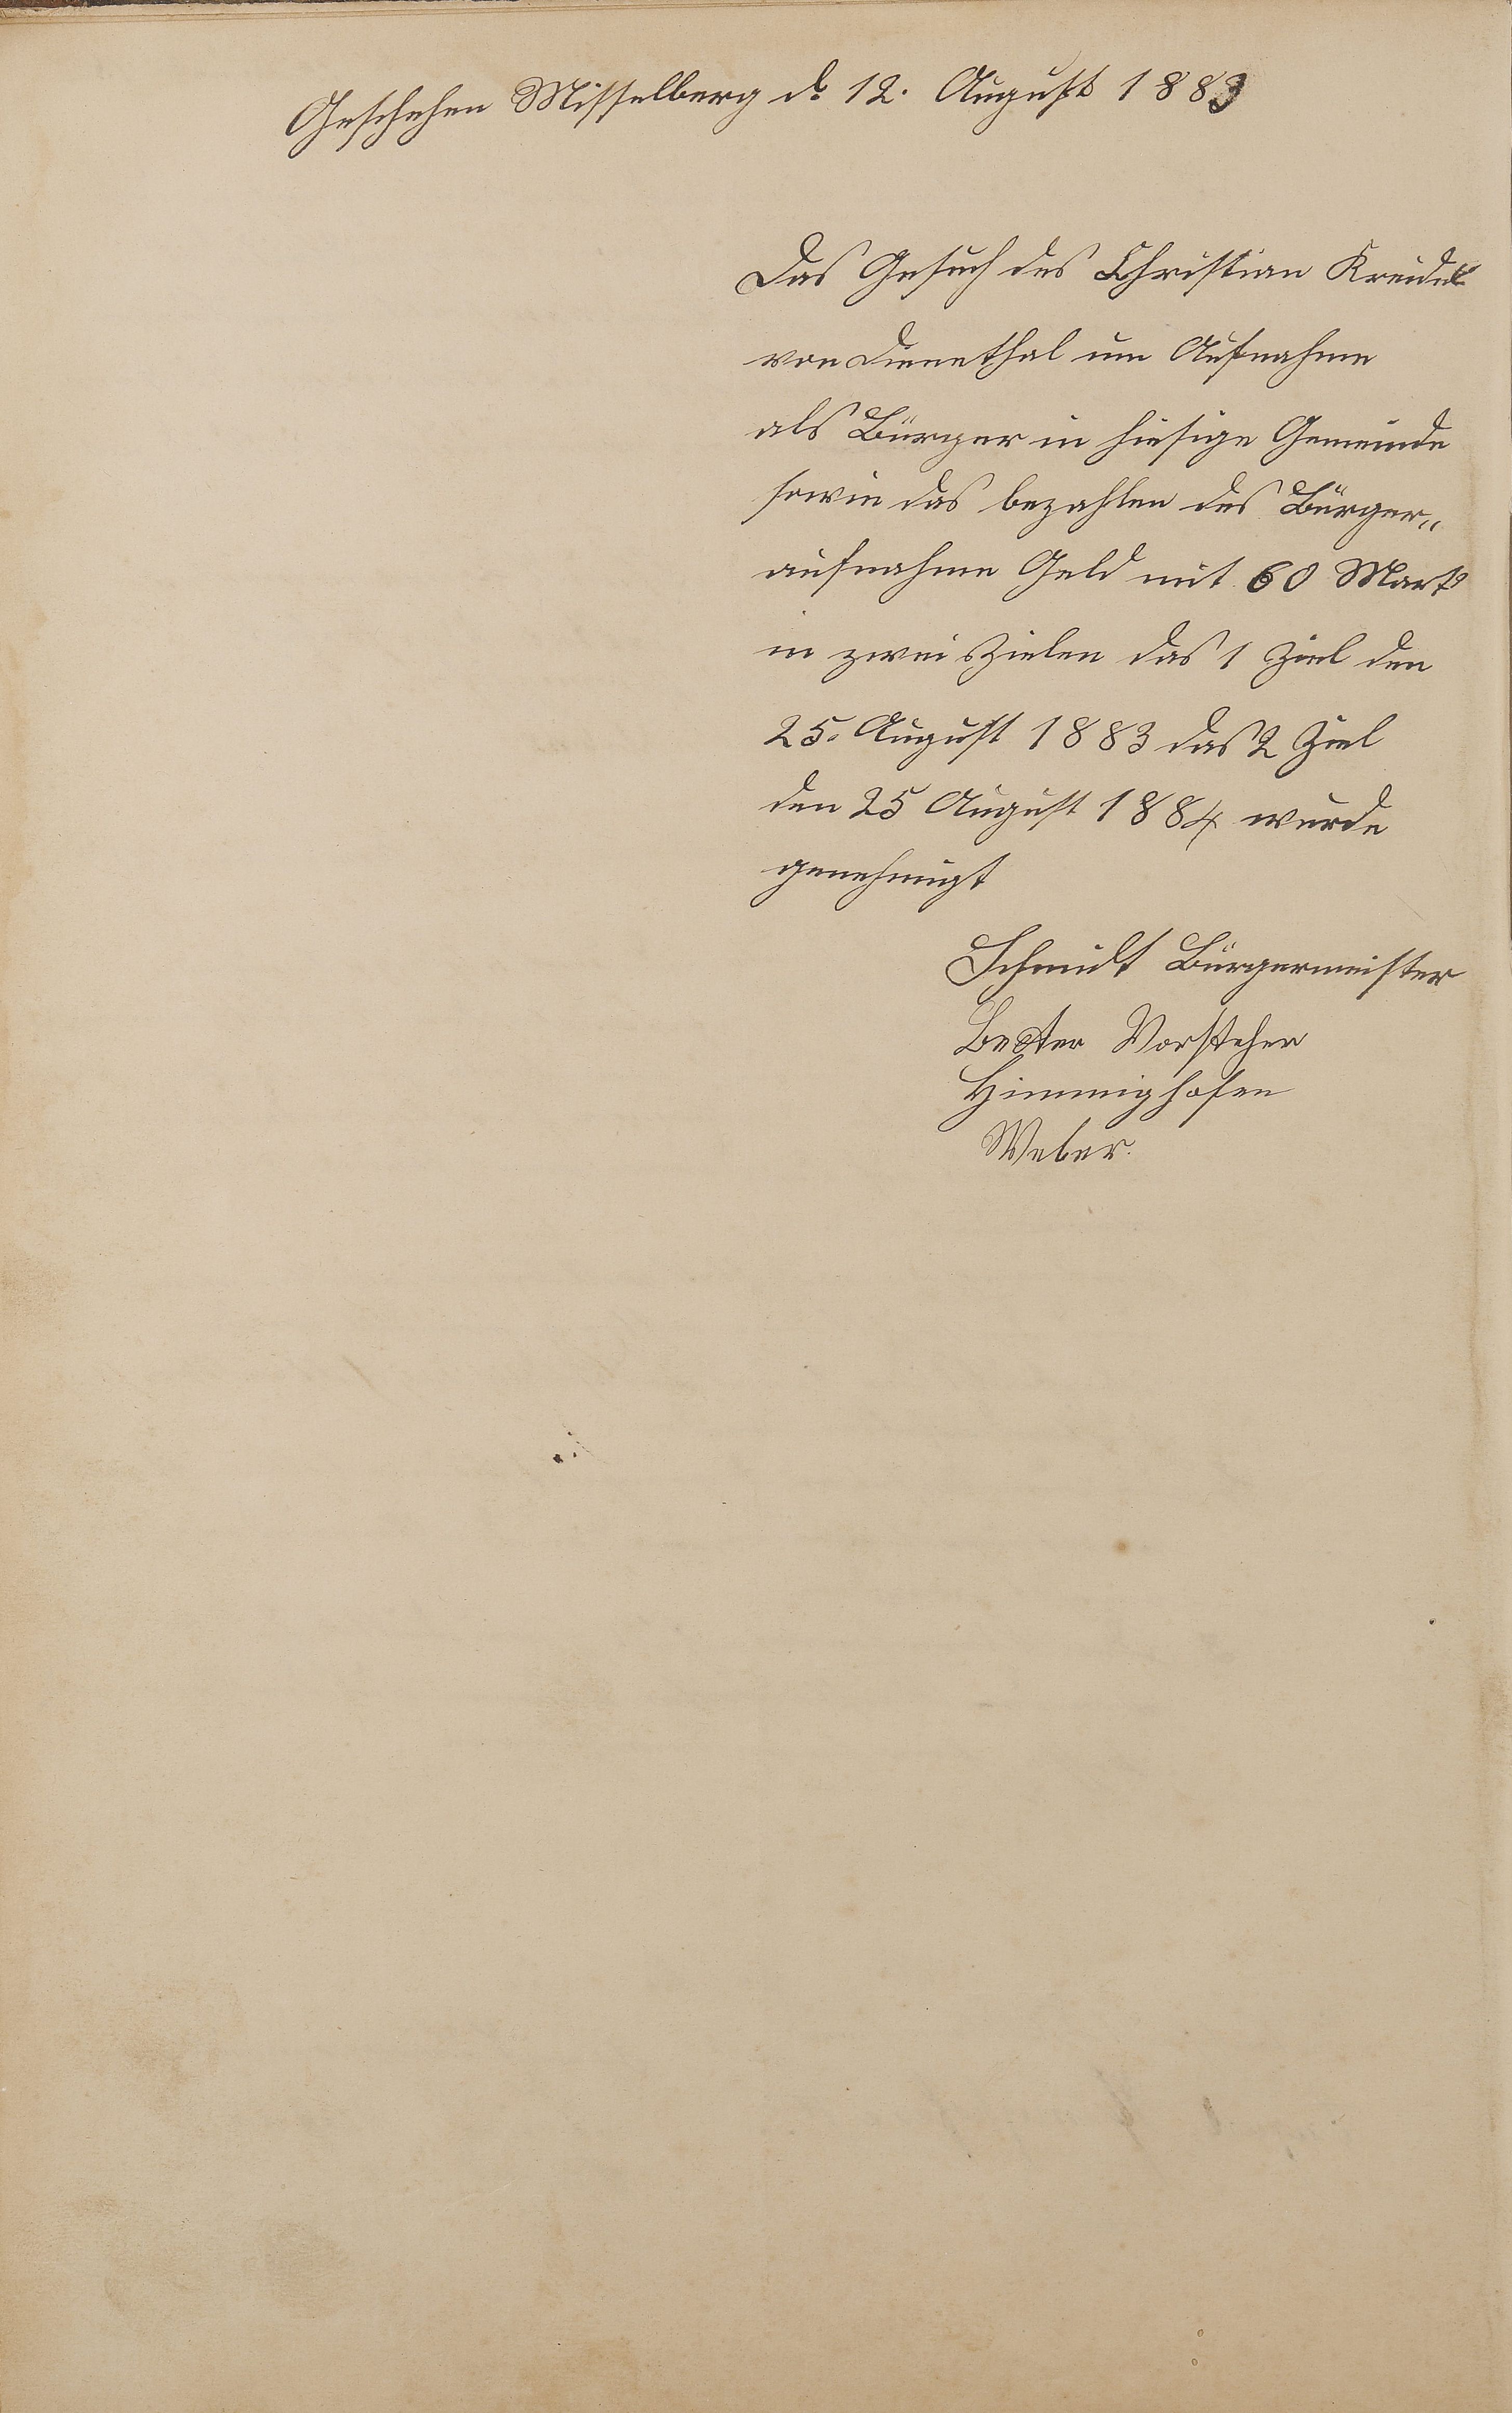 Geschehen Misselberg d. 12. August 1883
Das Gesuch des Christian Kreidel
von Dienethal um Aufnahme
als Bürger in hiesige Gemeinde
sowie das bezahlen des Bürger„
aufnahme Geld mit 60 Mark
in zwei Zielen das 1 Ziel den
25. August 1883 das 2 Ziel
den 25 August 1884 wurde
genehmigt
Schmidt Bürgermeister
Vorsteher
Himmighofen
Weber.